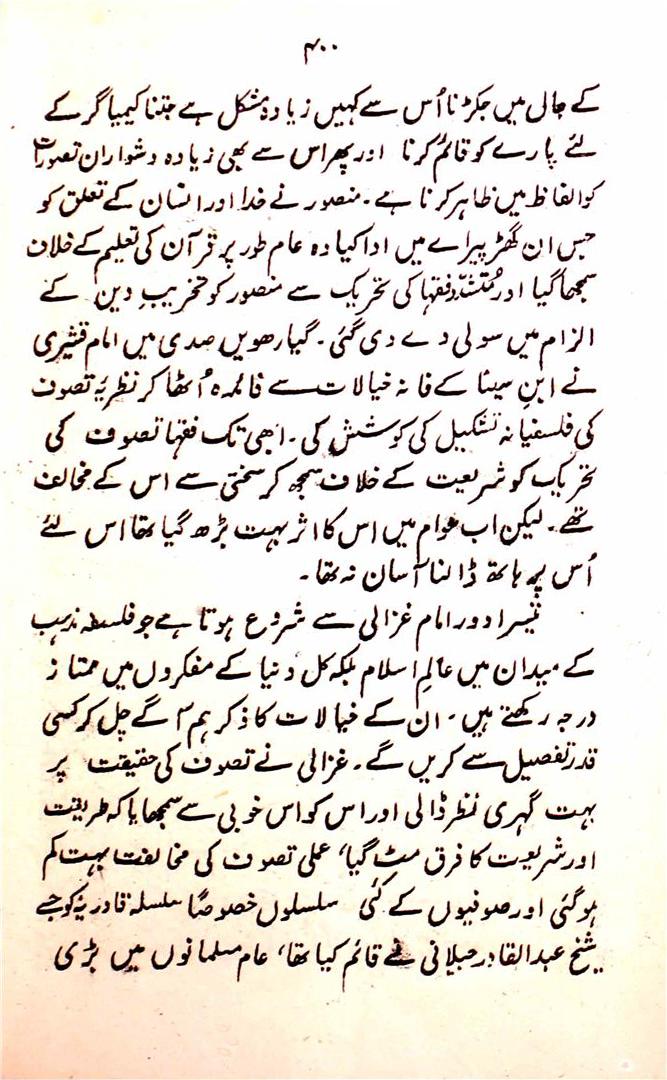 ۴۰۰
کے جال میں جکڑنا اُس سے کہیں زیادہ مشکل ہے جتنا کیمیا گر کے
لئے پارے کو قائم کرنا اور پھر اس سے بھی زیادہ دشوار ان تصورات
کو الفاظ میں ظاہر کرنا ہے۔ منصور نے خدا اور انسان کے تعلق کو
جس ان گھڑ پیرائے میں ادا کیا دہ عام طور پر قرآن کی تعلیم کے خلاف
سمجھا گیا اور مُتشدّد فقہا کی تحریک سے منصور کو تخریب دین کے
الزام میں سولی دے دی گئی۔ گیارھویں صدی میں امام قشیری
نے ابنِ سینا کے فانہ خیالات سے فائدہ اُٹھا کر نظریۂ تصوف
کی فلسفیانہ تشکیل کی کوشش کی۔ ابھی تک فقہا تصوف کی
تحریک کو شریعت کے خلاف سمجھ کر سختی سے اس کے مخالف
تھے۔ لیکن اب عوام میں اس کا اثر بہت بڑھ گیا تھا اس لئے
اُس پر ہاتھ ڈالنا آسان نہ تھا۔
تیسرا دور امام غزالی سے شروع ہوتا ہے جو فلسفہ مذہب
کے میدان میں عالمِ اسلام بلکہ کل دنیا کے مفکروں میں ممتاز
درجہ رکھتے ہیں۔ ان کے خیالات کا ذکر ہم آگے چل کر کسی
قدر تفصیل سے کریں گے۔ غزالی نے تصوف کی حقیقت پر
بہت گہری نظر ڈالی اور اس کو اس خوبی سے سمجھایا کہ طریقت
اور شریعت کا فرق مٹ گیا، علی تصوف کی مخالفت بہت کم
ہو گئی اور صوفیوں کے کئی سلسلوں خصوصاً سلسلہ قادریہ کو جسے
شیخ عبدالقادر جیلانی نے قائم کیا تھا، عام مسلمانوں میں بڑی